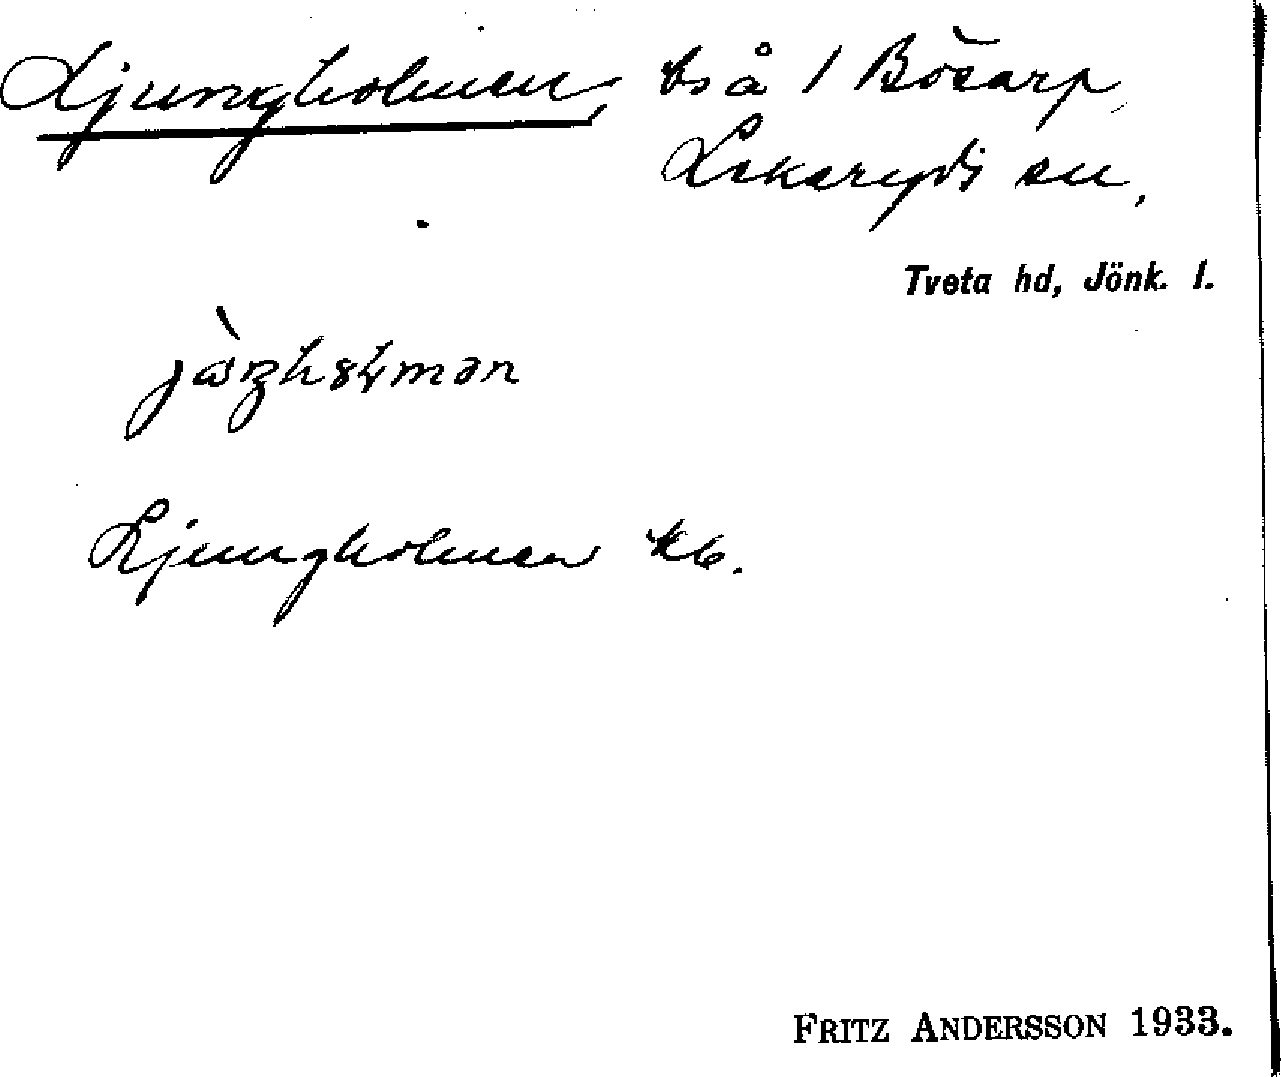 Ljungholmen, bs å 1 Bösarp,
Lekeryds sn,
Tveta hd, Jönk. l.
Ljungholmen kb.
FRITZ ANDERSSON 1933.